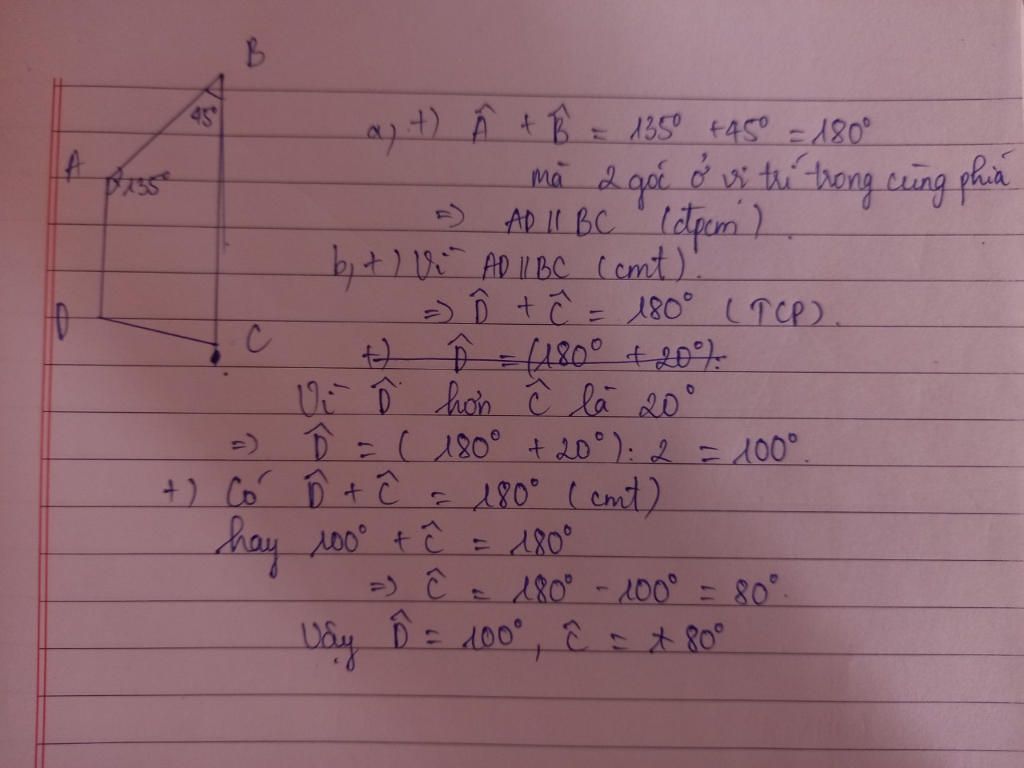 B
45°
A
135°
D
C
a, +) Â + B̂ = 135° + 45° = 180°
mà 2 góc ở vị trí trong cùng phía
=> AD // BC (đpcm).
b, +) Vì AD // BC (cmt).
=> D̂ + Ĉ = 180° (TCP).
+) D̂ = (180° + 20°):
Vì D̂ hơn Ĉ là 20°
=> D̂ = (180° + 20°) : 2 = 100°.
+) Có D̂ + Ĉ = 180° (cmt)
hay 100° + Ĉ = 180°
=> Ĉ = 180° - 100° = 80°.
Vậy D̂ = 100°, Ĉ = 80°